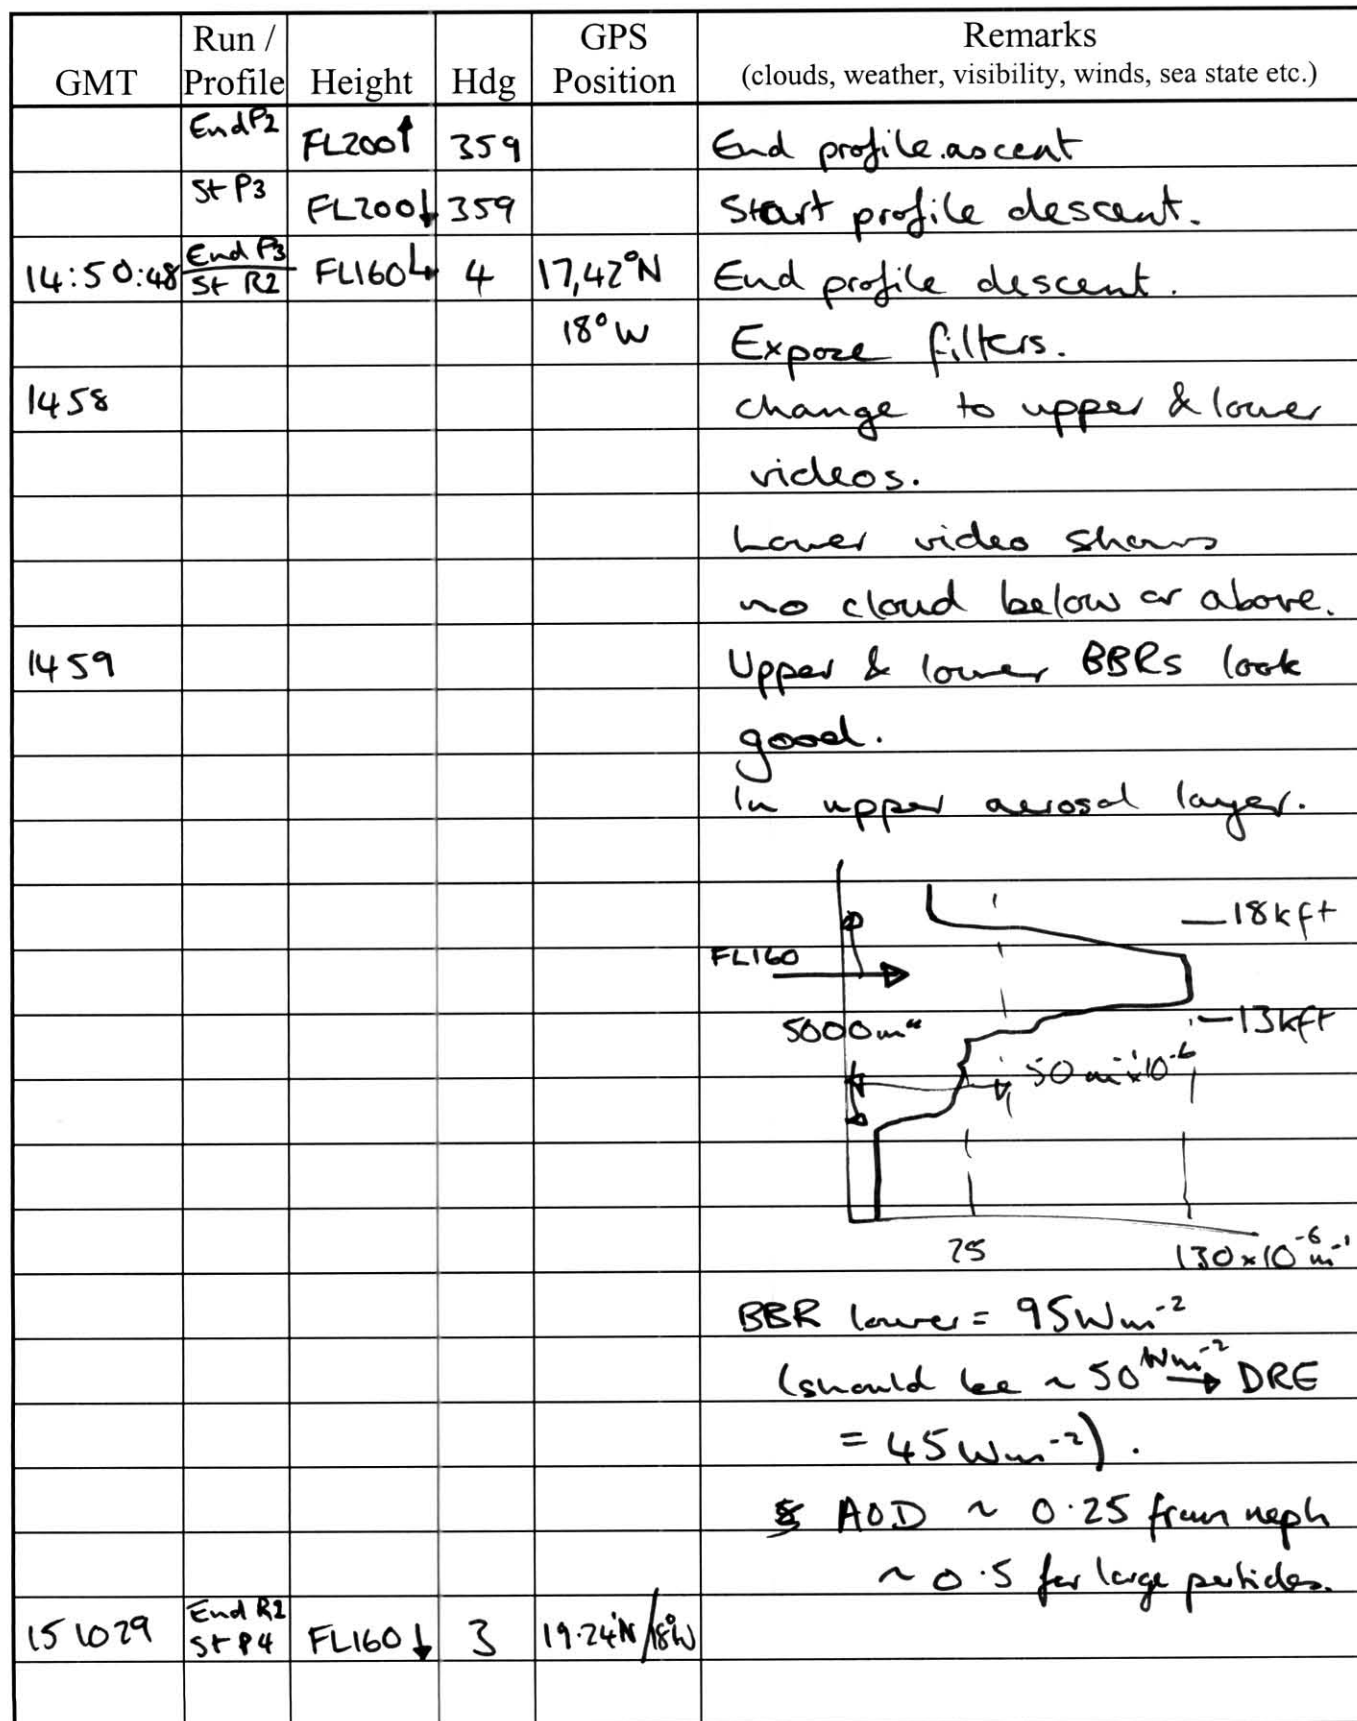 GMT Run / Profile Height Hdg GPS Position Remarks
(clouds, weather, visibility, winds, sea state etc.)
End P2 FL200↑ 359 End profile ascent
St P3 FL200↓ 359 Start profile descent.
14:50:48 End P3 St R2 FL160 4 17,42°N End profile descent.
18°W Expose filters.
1458 change to upper & lower
videos.
Lower video shows
no cloud below or above.
1459 Upper & lower BBRs look
good.
In upper aerosol layer.
18kft
FL160
13kft
5000m
50 m⁻¹x10⁻⁶
75 130 x 10⁻⁶ m⁻¹
BBR lower = 95Wm⁻²
(should be ~ 50 Wm⁻² → DRE
= 45 Wm⁻²).
AOD ~ 0.25 from neph
~ 0.5 for large particles.
151029 End R2 St P4 FL160↓ 3 19.24N/18°W